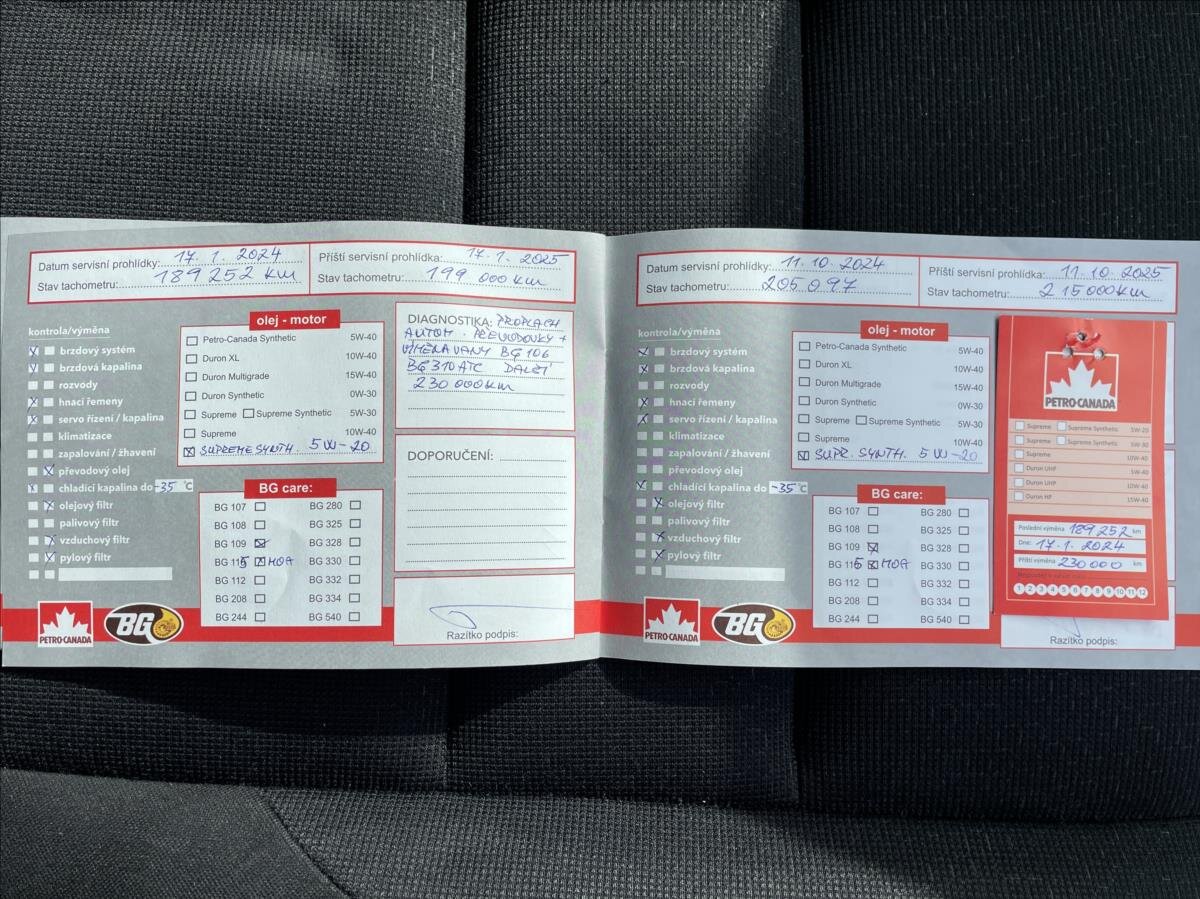 Datum servisní prohlídky: 17. 1. 2024
Stav tachometru: 189 252 km
Příští servisní prohlídka: 17. 1. 2025
Stav tachometru: 199 000 km
kontrola/výměna
brzdový systém
brzdová kapalina
rozvody
hnací řemeny
servo řízení / kapalina
klimatizace
zapalování / žhavení
převodový olej
chladící kapalina do -35 °C
olejový filtr
palivový filtr
vzduchový filtr
pylový filtr
olej - motor
Petro-Canada Synthetic 5W-40
Duron XL 10W-40
Duron Multigrade 15W-40
Duron Synthetic 0W-30
Supreme Supreme Synthetic 5W-30
Supreme 10W-40
SUPREME SYNTH. 5W-20
BG care:
BG 107 BG 280
BG 108 BG 325
BG 109 BG 328
BG 115 MOA BG 330
BG 112 BG 332
BG 208 BG 334
BG 244 BG 540
DIAGNOSTIKA: PROPLACH
AUTOM. PŘEVODOVKY +
VÝMĚNA VANY BG 106
BG 310 ATC DALŠÍ
230 000km
DOPORUČENÍ:
Razítko podpis:
PETRO-CANADA
BG
Datum servisní prohlídky: 11. 10. 2024
Stav tachometru: 205 097
Příští servisní prohlídka: 11. 10. 2025
Stav tachometru: 215000km
kontrola/výměna
brzdový systém
brzdová kapalina
rozvody
hnací řemeny
servo řízení / kapalina
klimatizace
zapalování / žhavení
převodový olej
chladící kapalina do -35 °C
olejový filtr
palivový filtr
vzduchový filtr
pylový filtr
olej - motor
Petro-Canada Synthetic 5W-40
Duron XL 10W-40
Duron Multigrade 15W-40
Duron Synthetic 0W-30
Supreme Supreme Synthetic 5W-30
Supreme 10W-40
SUPR. SYNTH. 5W-20
BG care:
BG 107 BG 280
BG 108 BG 325
BG 109 BG 328
BG 115 MOA BG 330
BG 112 BG 332
BG 208 BG 334
BG 244 BG 540
PETRO-CANADA
Supreme Supreme Synthetic 5W-20
Supreme Supreme Synthetic 5W-30
Supreme 10W-40
Duron UHP 5W-40
Duron UHP 10W-40
Duron HP 15W-40
Poslední výměna 189252 km
Dne: 17. 1. 2024
Příští výměna 230000 km
1 2 3 4 5 6 7 8 9 10 11 12
Razítko podpis:
PETRO-CANADA
BG